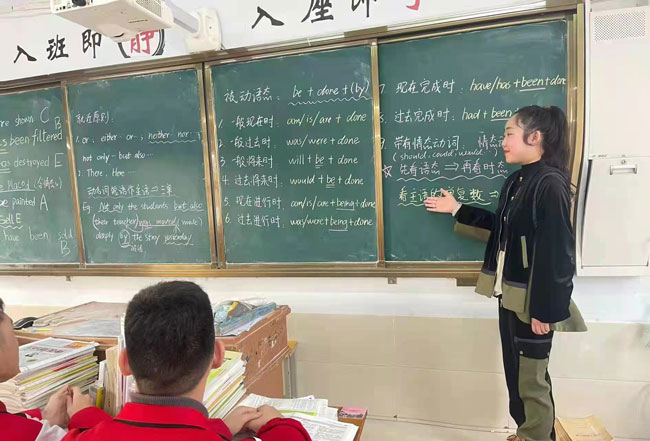 入班即(静)
入座即
C
B
been filtered
destroyed E
painted A
have been sold
B
就近原则:
1. or, either…or…, neither…nor…
not only…but also…
2. There, Here…
Eg. Not only the students but also
their teacher
deeply by the story yesterday.
被动语态: be + done + (by)
1. 一般现在时: am/is/are + done
2. 一般过去时: was/were + done
3. 一般将来时: will + be + done
4. 过去将来时: would + be + done
5. 现在进行时: am/is/are + being + done
6. 过去进行时: was/were + being + done
7. 现在完成时: have/has + been + done
8. 过去完成时: had + been
9. 带有情态动词 情态
(should, could, would
☆ 先看语态 ⇒ 再看时态
看主语的 数 ⇒